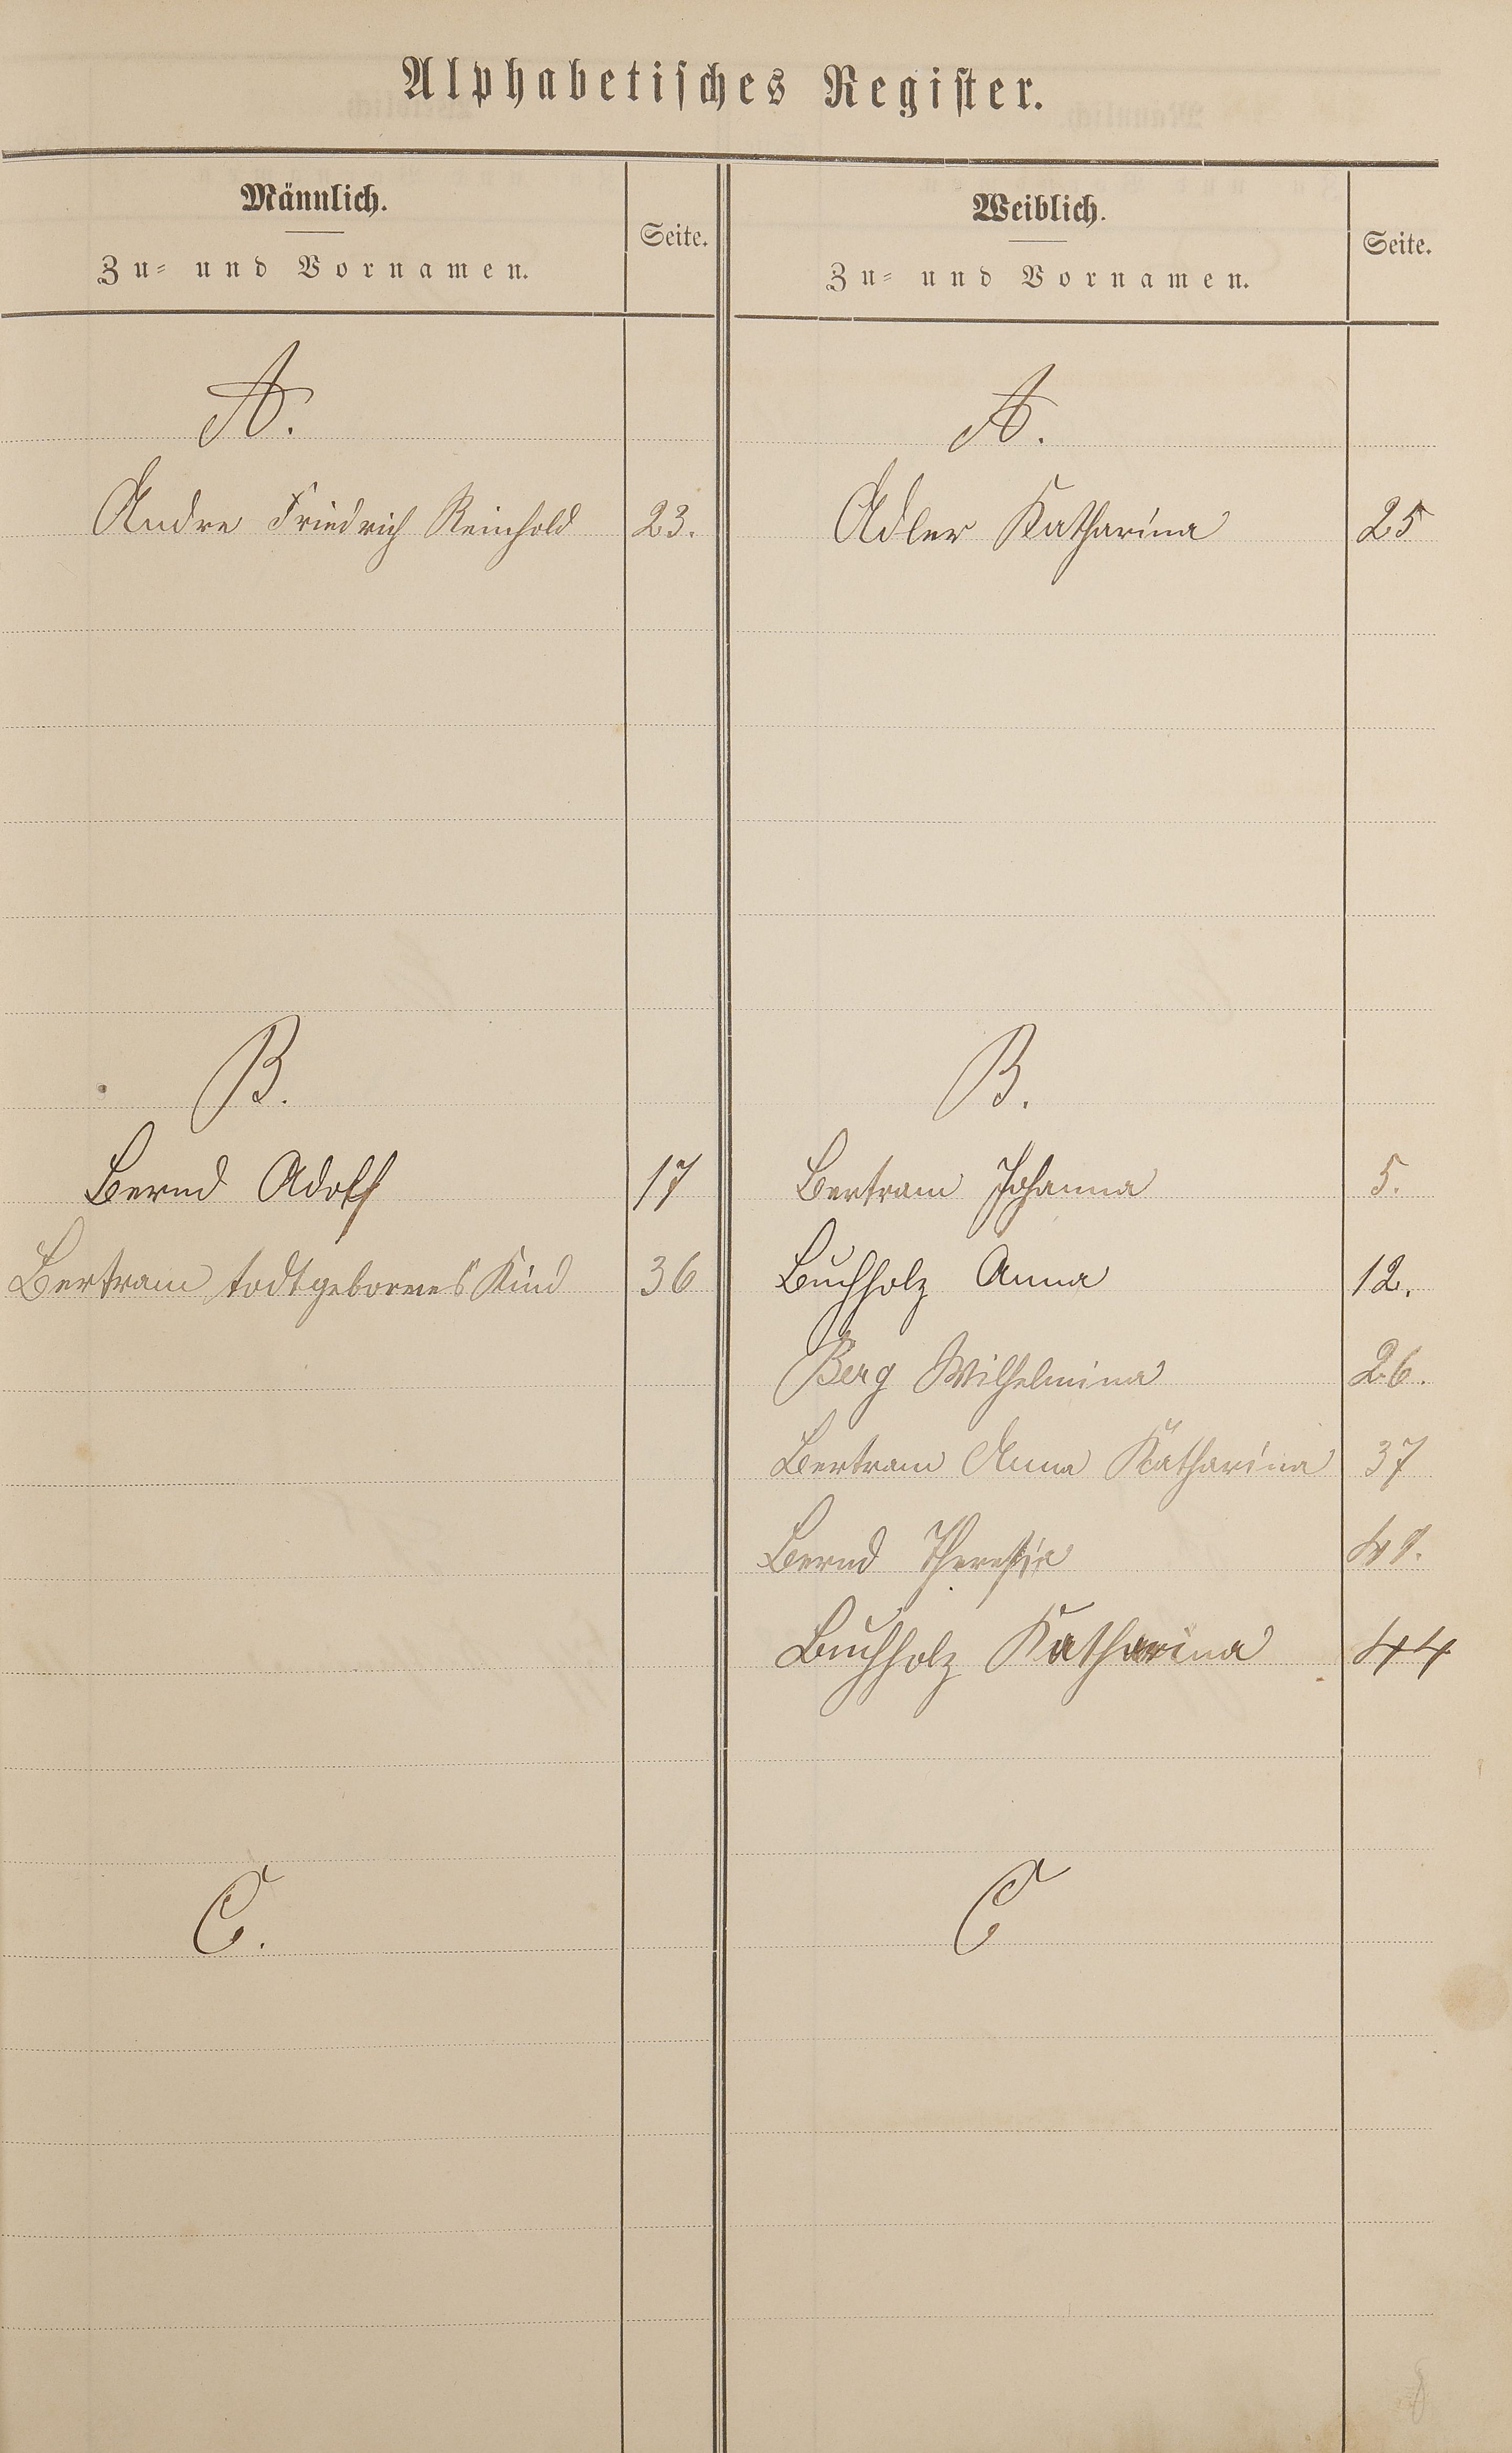 Alphabetisches Register.
Männlich.
Zu- und Vornamen.
Seite.
A.
Andre Friedrich Reinhold 23.
B.
Bernd Adolf 17
Bertram todtgebornes Kind 36
C.
Weiblich.
Zu- und Vornamen.
Seite.
A.
Adler Katharina 25
B.
Bertram Johanna 5.
Buchholz Anna 12.
Berg Wilhelmina 26.
Bertram Anna Katharina 37
Bernd Theresia
Buchholz Katharina 44
C